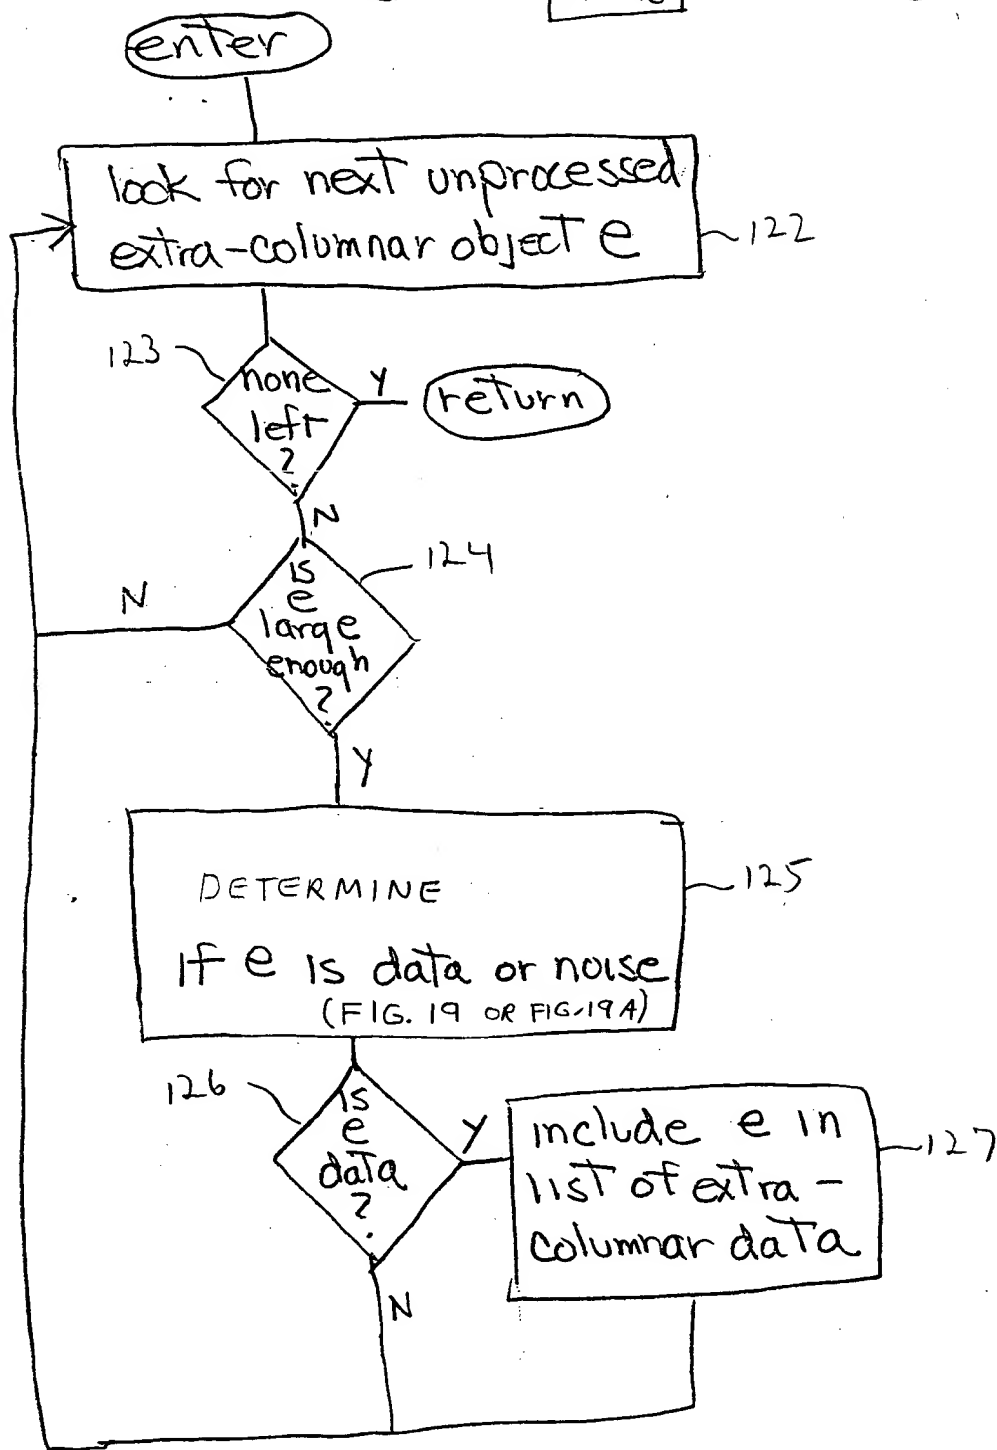 enter
look for next unprocessed
extra-columnar object e
122
123
none
left
?
Y
return
N
is
e
large
enough
?
124
N
Y
DETERMINE
if e is data or noise
(FIG. 19 OR FIG. 19A)
125
126
is
e
data
?
Y
include e in
list of extra-
columnar data
127
N